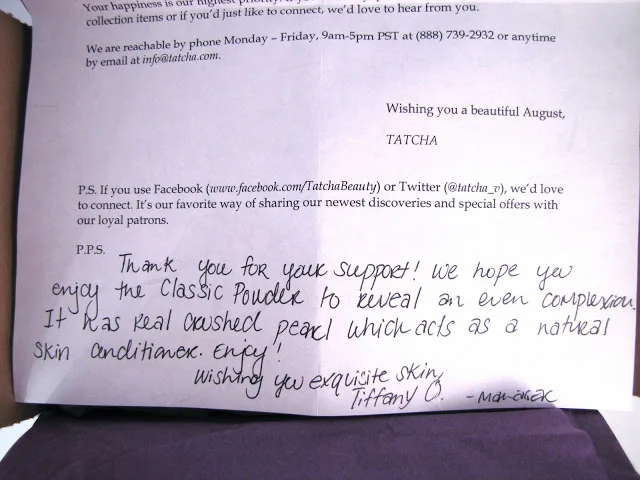 Your happiness is our highest priority.
collection items or if you'd just like to connect, we'd love to hear from you.
We are reachable by phone Monday – Friday, 9am-5pm PST at (888) 739-2932 or anytime
by email at info@tatcha.com.
Wishing you a beautiful August,
TATCHA
P.S. If you use Facebook (www.facebook.com/TatchaBeauty) or Twitter (@tatcha_v), we'd love
to connect. It's our favorite way of sharing our newest discoveries and special offers with
our loyal patrons.
P.P.S.
Thank you for your support! We hope you
enjoy the Classic Powder to reveal an even complexion.
It has real crushed pearl which acts as a natural
skin conditioner. Enjoy!
Wishing you exquisite skin,
Tiffany O. - Manager